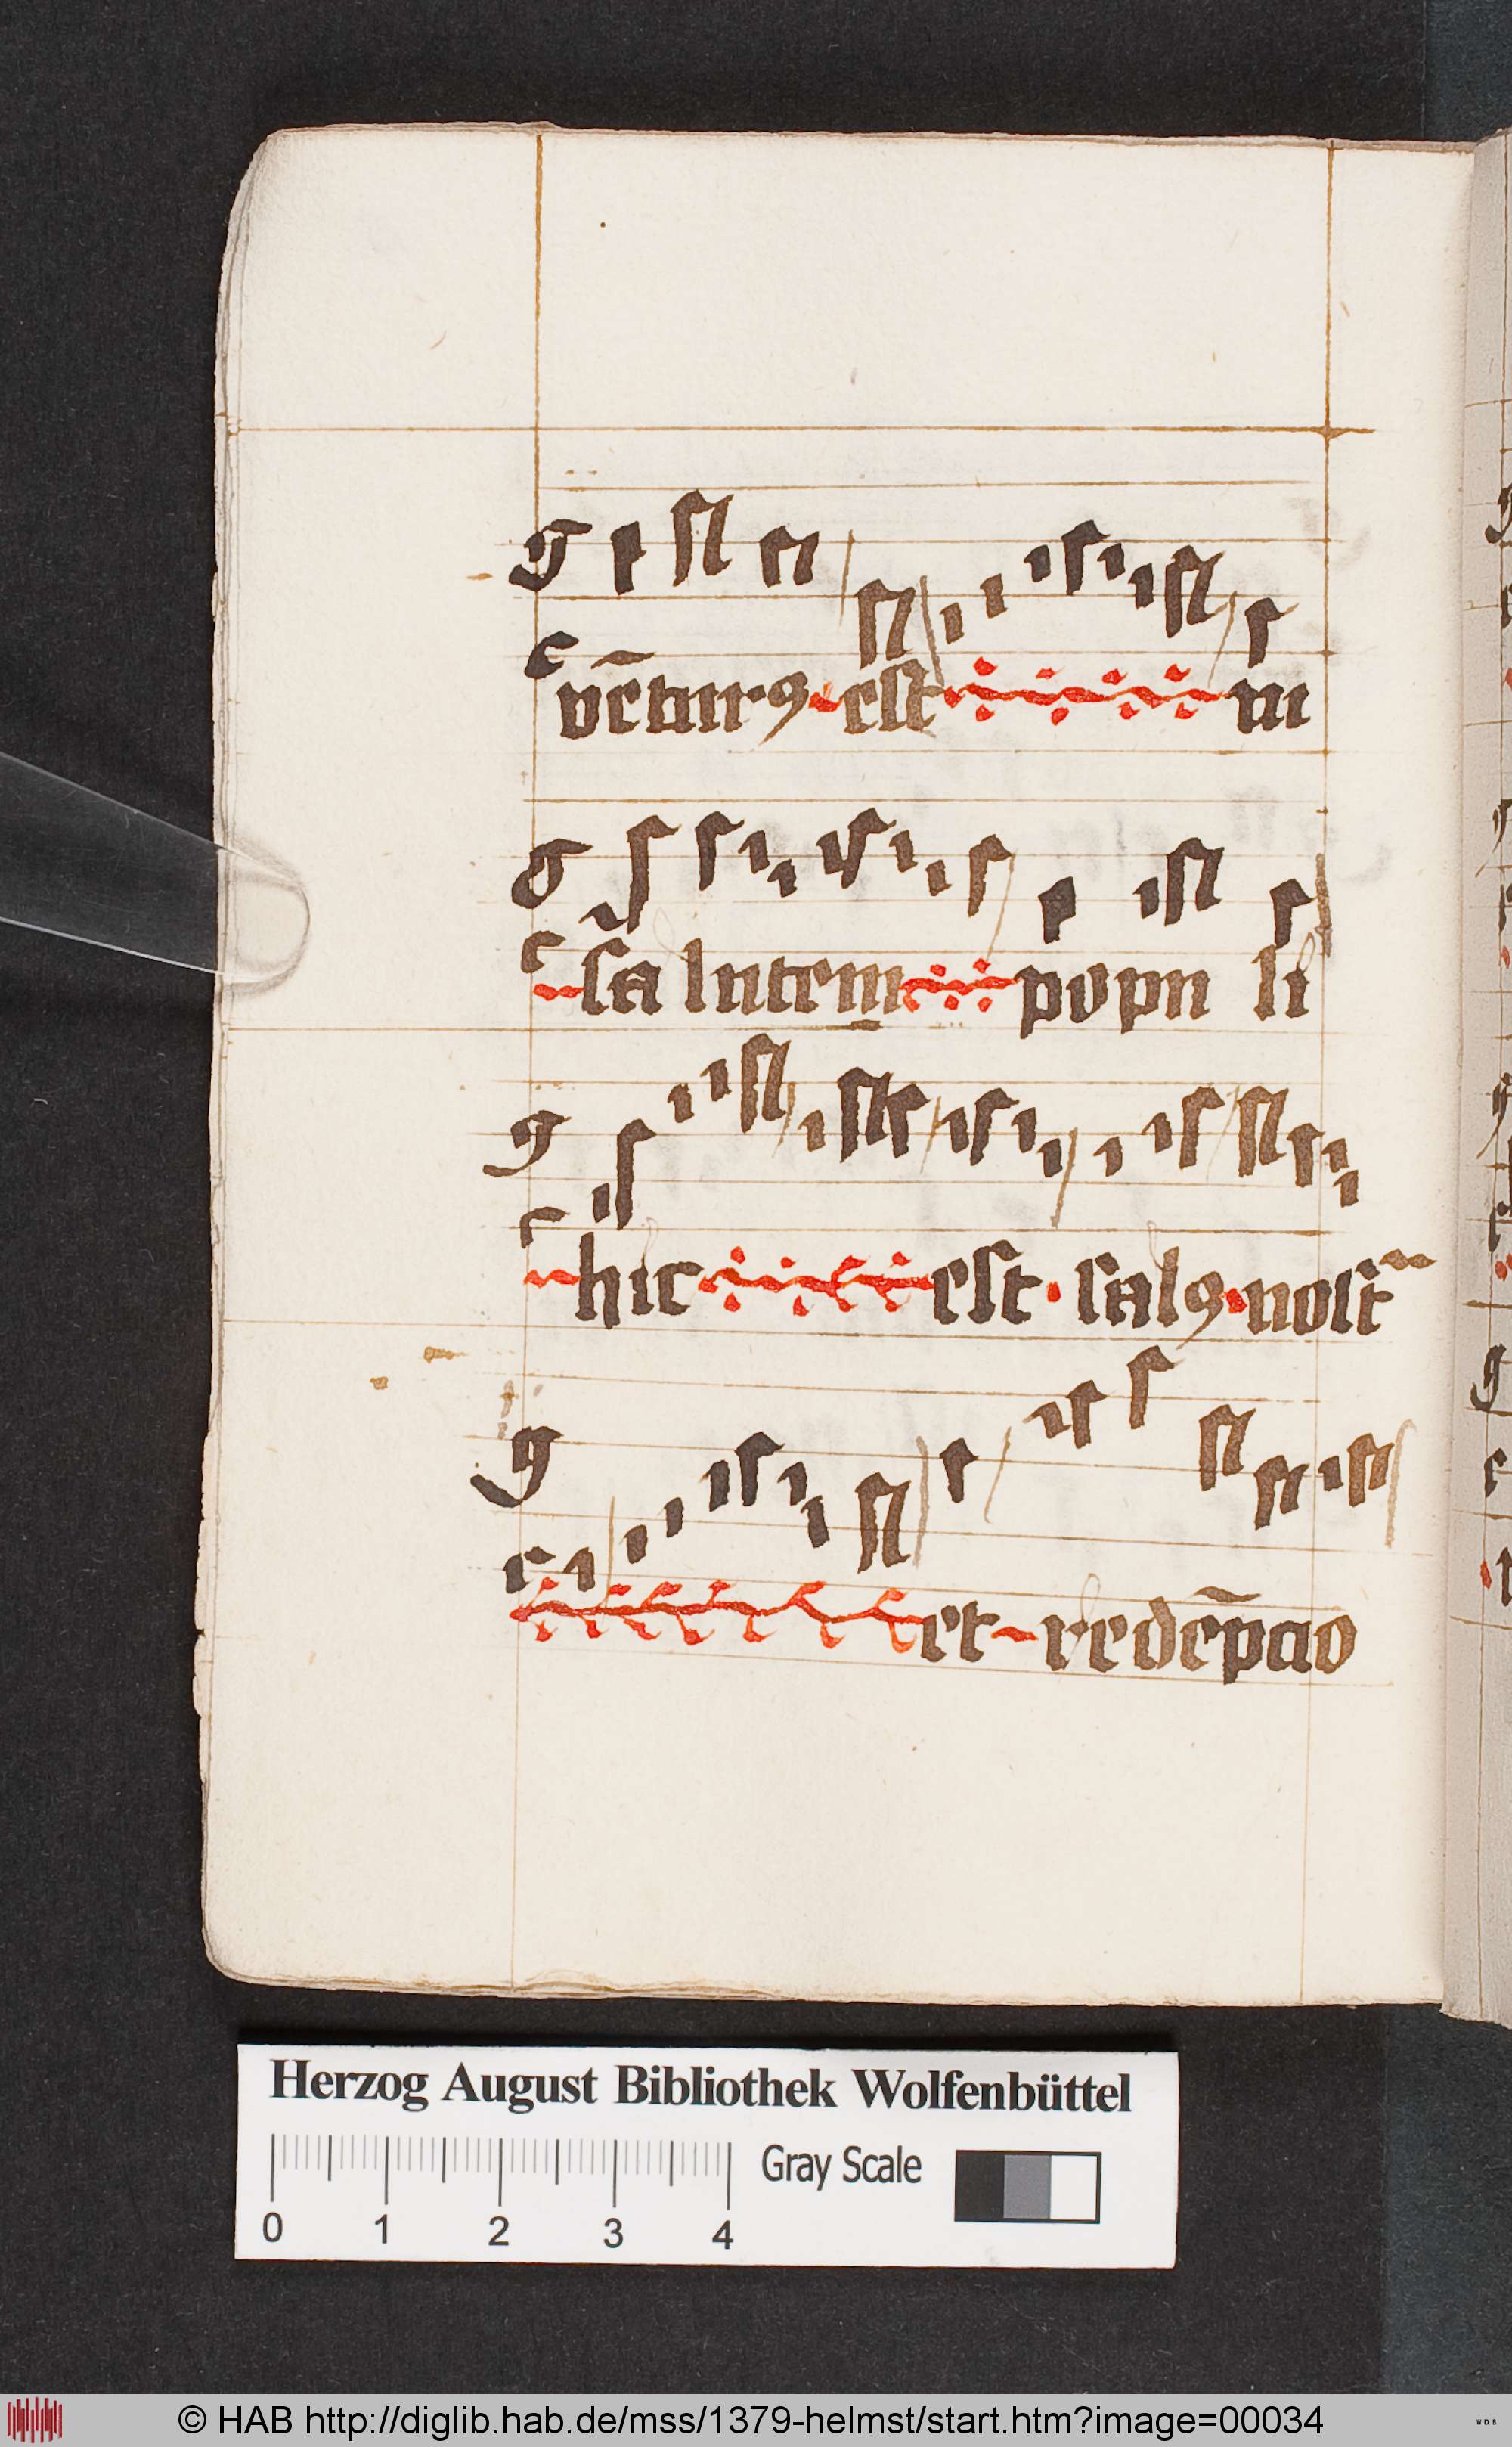 vētur⁹ est in
salutem popu li
hic est sal⁹ nostͬ
et redēpcio
Herzog August Bibliothek Wolfenbüttel
0 1 2 3 4 Gray Scale
© HAB http://diglib.hab.de/mss/1379-helmst/start.htm?image=00034